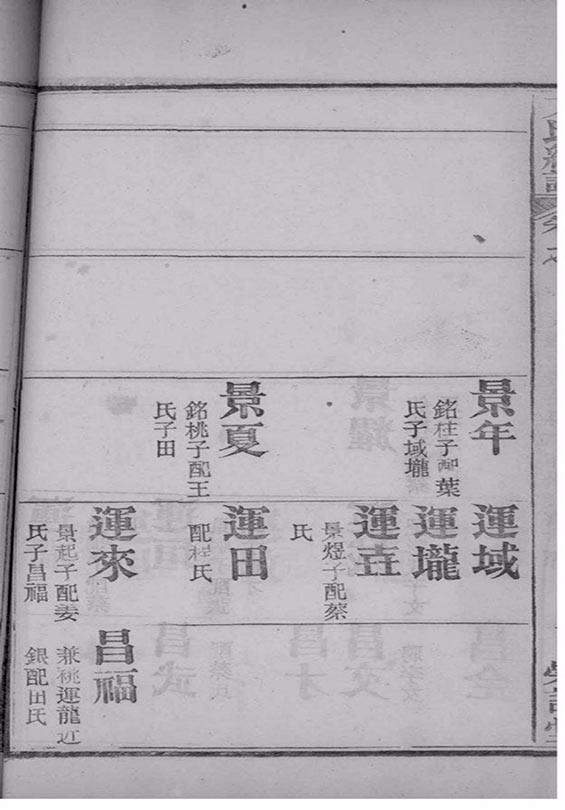 景年
銘柱子配葉
氏子域壠
景夏
銘桃子配王
氏子田
運域
運壠
景煜子配蔡
氏
運田
配杜氏
運來
景起子配姜
氏子昌福
昌福
兼祧運龍近
銀配田氏